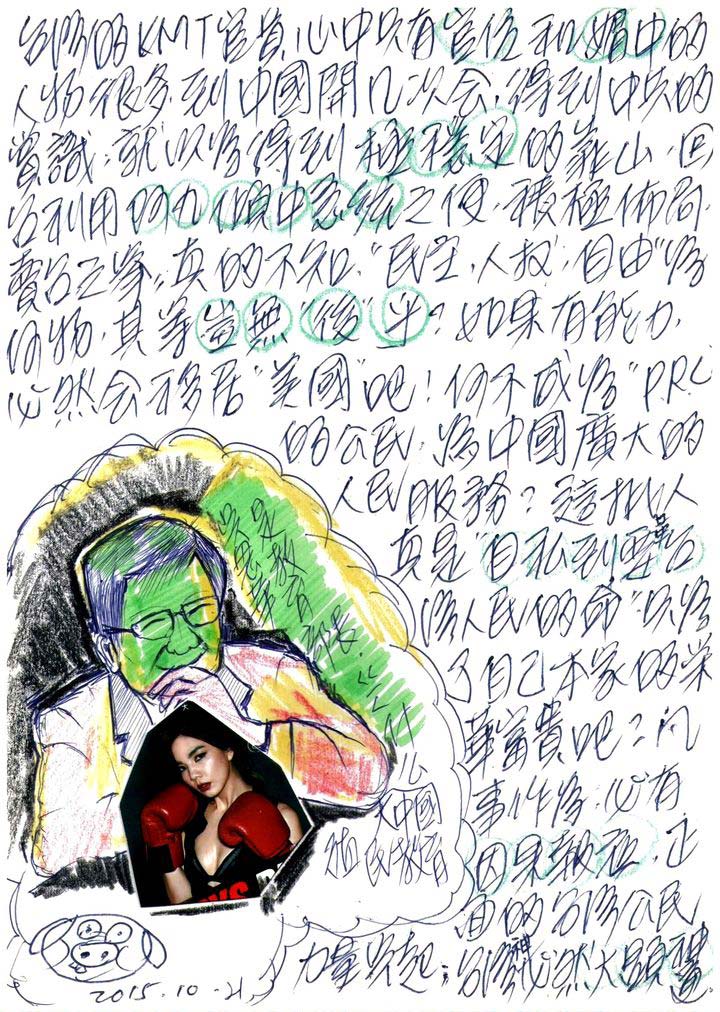 台灣的KMT官員,心中只有官位和媚中的
人物很多,到中國開几次会,得到中共的
賞識,就以為得到極穩定的靠山,回
台利用的九傾中系統之便,積極佈局,
賣台之爭,真的不知,"民主,人权,自由"為
何物,其等豈無"後"乎?如果有能力,
必然会移居"美國"吧!何不成為"PRC
的公民,為中國廣大的
人民服務?這批人
真是"自私到要台
灣人民的命"只為
了自己本家的榮
華富貴吧?凡
事作為,必有
因果報應,正
面的台灣公民
力量崛起,台灣神必然大顯
吳思華
是教育部長
什么
大中國
殖民教育
2015.10-21